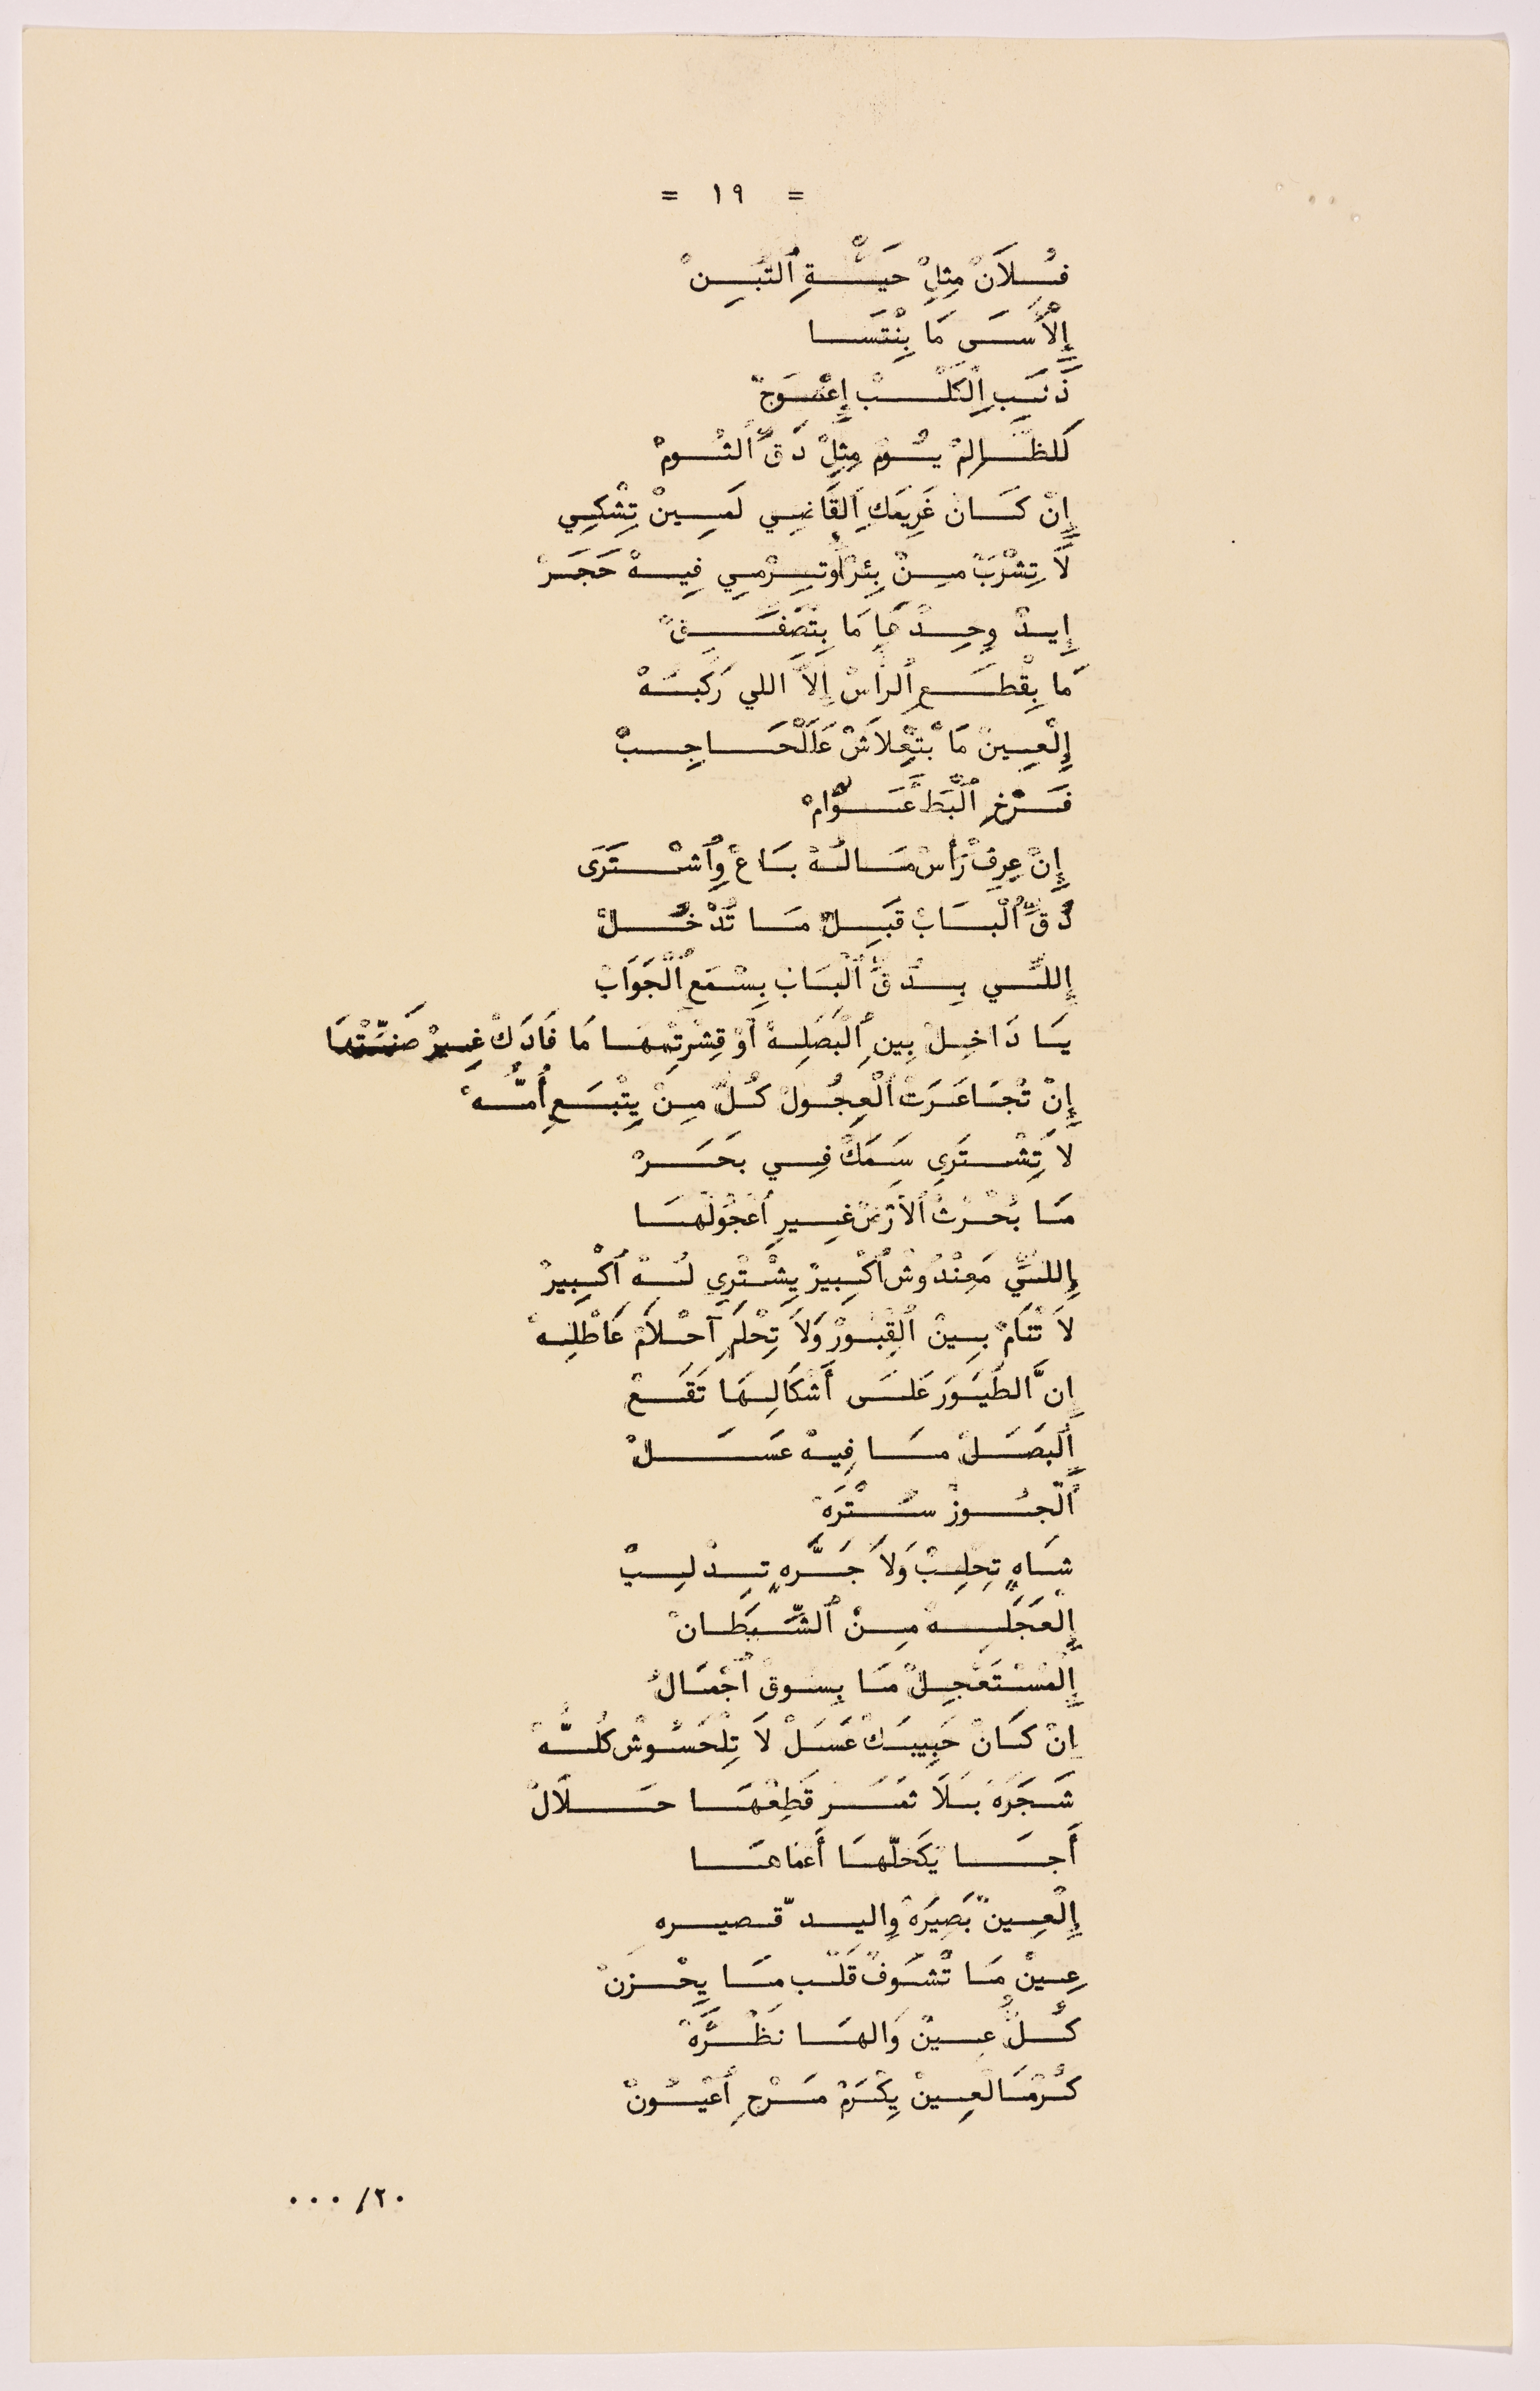 = ١٩ =
فُلاَنْ مِثِلْ حَيْةِ ٱلتِّبِنْ
إِلْأَسَى مَا بِنْتَسَا
ذَنَبِ اِلْكَلْبْ إِعْوَجْ
لَلظَّالِمْ يُومْ مِثِلْ دَقِّ ٱلثُومْ
إِنْ كَانْ غَرِيمَكِ اَلْقَاضِي لَمِينْ تِشْكِي
لاَ تِشْرَبْ مِنْ بِئرْ اُوتِرْمِي فِيهْ حَجَرْ
إِيدْ وِحِدْهَا مَا بِتْصَفِّقْ
مَا بِقْطَعِ ٱلرأسْ إِلاَّ اللي رَكّبُهْ
إِلْعِينْ مَا بْتِعْلاَشْ عَلَلْحَاجِبْ
فَرْخِ ٱلْبَطْ عَوَّامْ
إِنْ عِرِفْ رَأْسْ مَالُهْ بَاعْ وِٱشْتَرَى
دُقِّ ٱلْبَابْ قَبِلْ مَا تُدْخُلْ
إِللِّي بِدُقِّ ٱلْبَابْ بِسْمَعِ ٱلْجَوَابْ
يَا دَاخِلْ بِينِ ٱلْبَصَلِهْ اُوْ قِشْرِتْهَا مَا فَادَكْ غِيرْ صَنِّتْهَا
إِنْ تْجَاعَرَتْ ٱلْعِجُولْ كُلّْ مِنْ يِتْبَعِ أُمُّهْ
لاَ تِشْتَرِي سَمَكْ فِي بَحَرْ
مَا بُحْرُثْ ٱلأَرْضْ غِيرِ ٱعْجُولْهَا
إِللِّي مَعِنْدُوشْ ٱكْبِيرْ يِشْتْرِي لُهْ ٱكْبِيرْ
لاَ تْنَامْ بِينْ ٱلِقْبُورْ وَلاَ تِحْلَمِ آحْلاَمْ عَاطْلِهْ
إِنَّ الطُيَورَ عَلَى أَشْكَالِهَا تَقَعْ
اَلْبَصَلْ مَا فِيهْ عَسَلْ
اَلْجُوزْ سُتْرَهْ
شَاهٍ تِحْلِبْ وَلاَ جَرَّهٍ تِدْلِبْ
إِلْعَجَلِهْ مِنْ ٱلشِّيطَانْ
إِلْمُسْتَعْجِلْ مَا بِسُوقْ ٱجْمَالْ
إِنْ كَانْ حَبِيبَكْ عَسَلْ لاَ تِلْحَسُوشْ كُلُّهْ
شَجَرَهْ بَلاَ ثَمَرِ قَطِعْهَا حَلَالْ
أَجَا يْكَحّلْهَا أَعْمَاهَا
إِلْعِينْ بَصِيرَهْ وِالِيدّ قصيره
عِينْ مَا تْشُوفْ قَلْبْ مَا يِحْزَنْ
كُلّْ عِينْ وَالهَا نَظْرَهْ
كُرْمَالْعِينْ يِكْرَمْ مَرْجِ ٱعْيُونْ
٢٠/ ٠٠٠